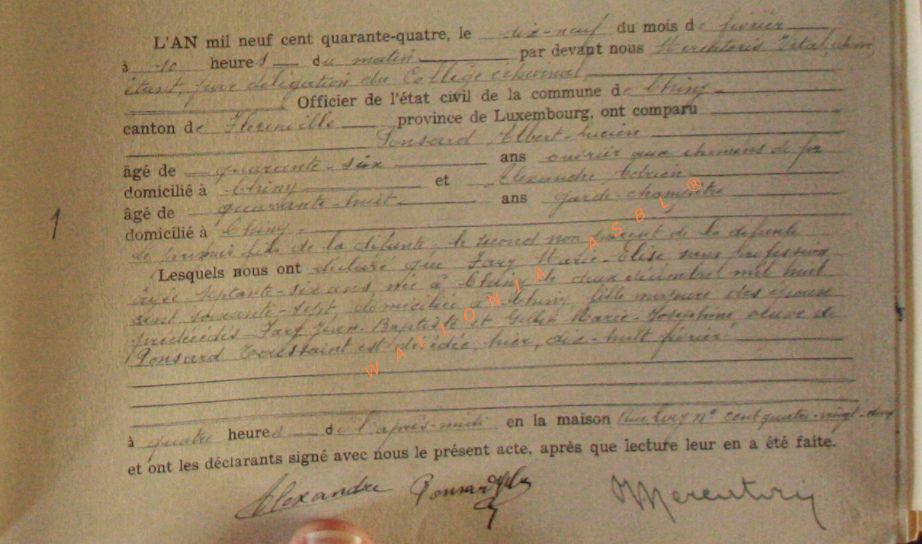 L'AN mil neuf cent quarante-quatre, le dix-neuf du mois de février
à 10 heures du matin par devant nous Vital
étant, par délégation du Collège échevinal,
Officier de l'état civil de la commune de Chiny
canton de Florenville province de Luxembourg, ont comparu
Ponsard Albert-Lucien
âgé de quarante-six ans ouvrier aux chemins de fer
domicilié à Chiny et Alexandre Adrien
âgé de quarante-huit ans garde-champêtre
domicilié à Chiny.
1
le premier fils de la défunte, le second non parent de la défunte
Lesquels nous ont déclaré que Marie-Elise sans profession
âgée septante-six ans, née à Chiny le deux décembre mil huit
cent soixante-sept, domiciliée à Chiny, fille majeure des époux
prédécédés Jean-Baptiste et Marie-Josephine, veuve de
Ponsard Toussaint est décédée, hier, dix-huit février,
à quatre heures de l'après-midi en la maison n° cent quatre-vingt-deux
et ont les déclarants signé avec nous le présent acte, après que lecture leur en a été faite.
Alexandre Ponsard
WALLONIA ASBL ®